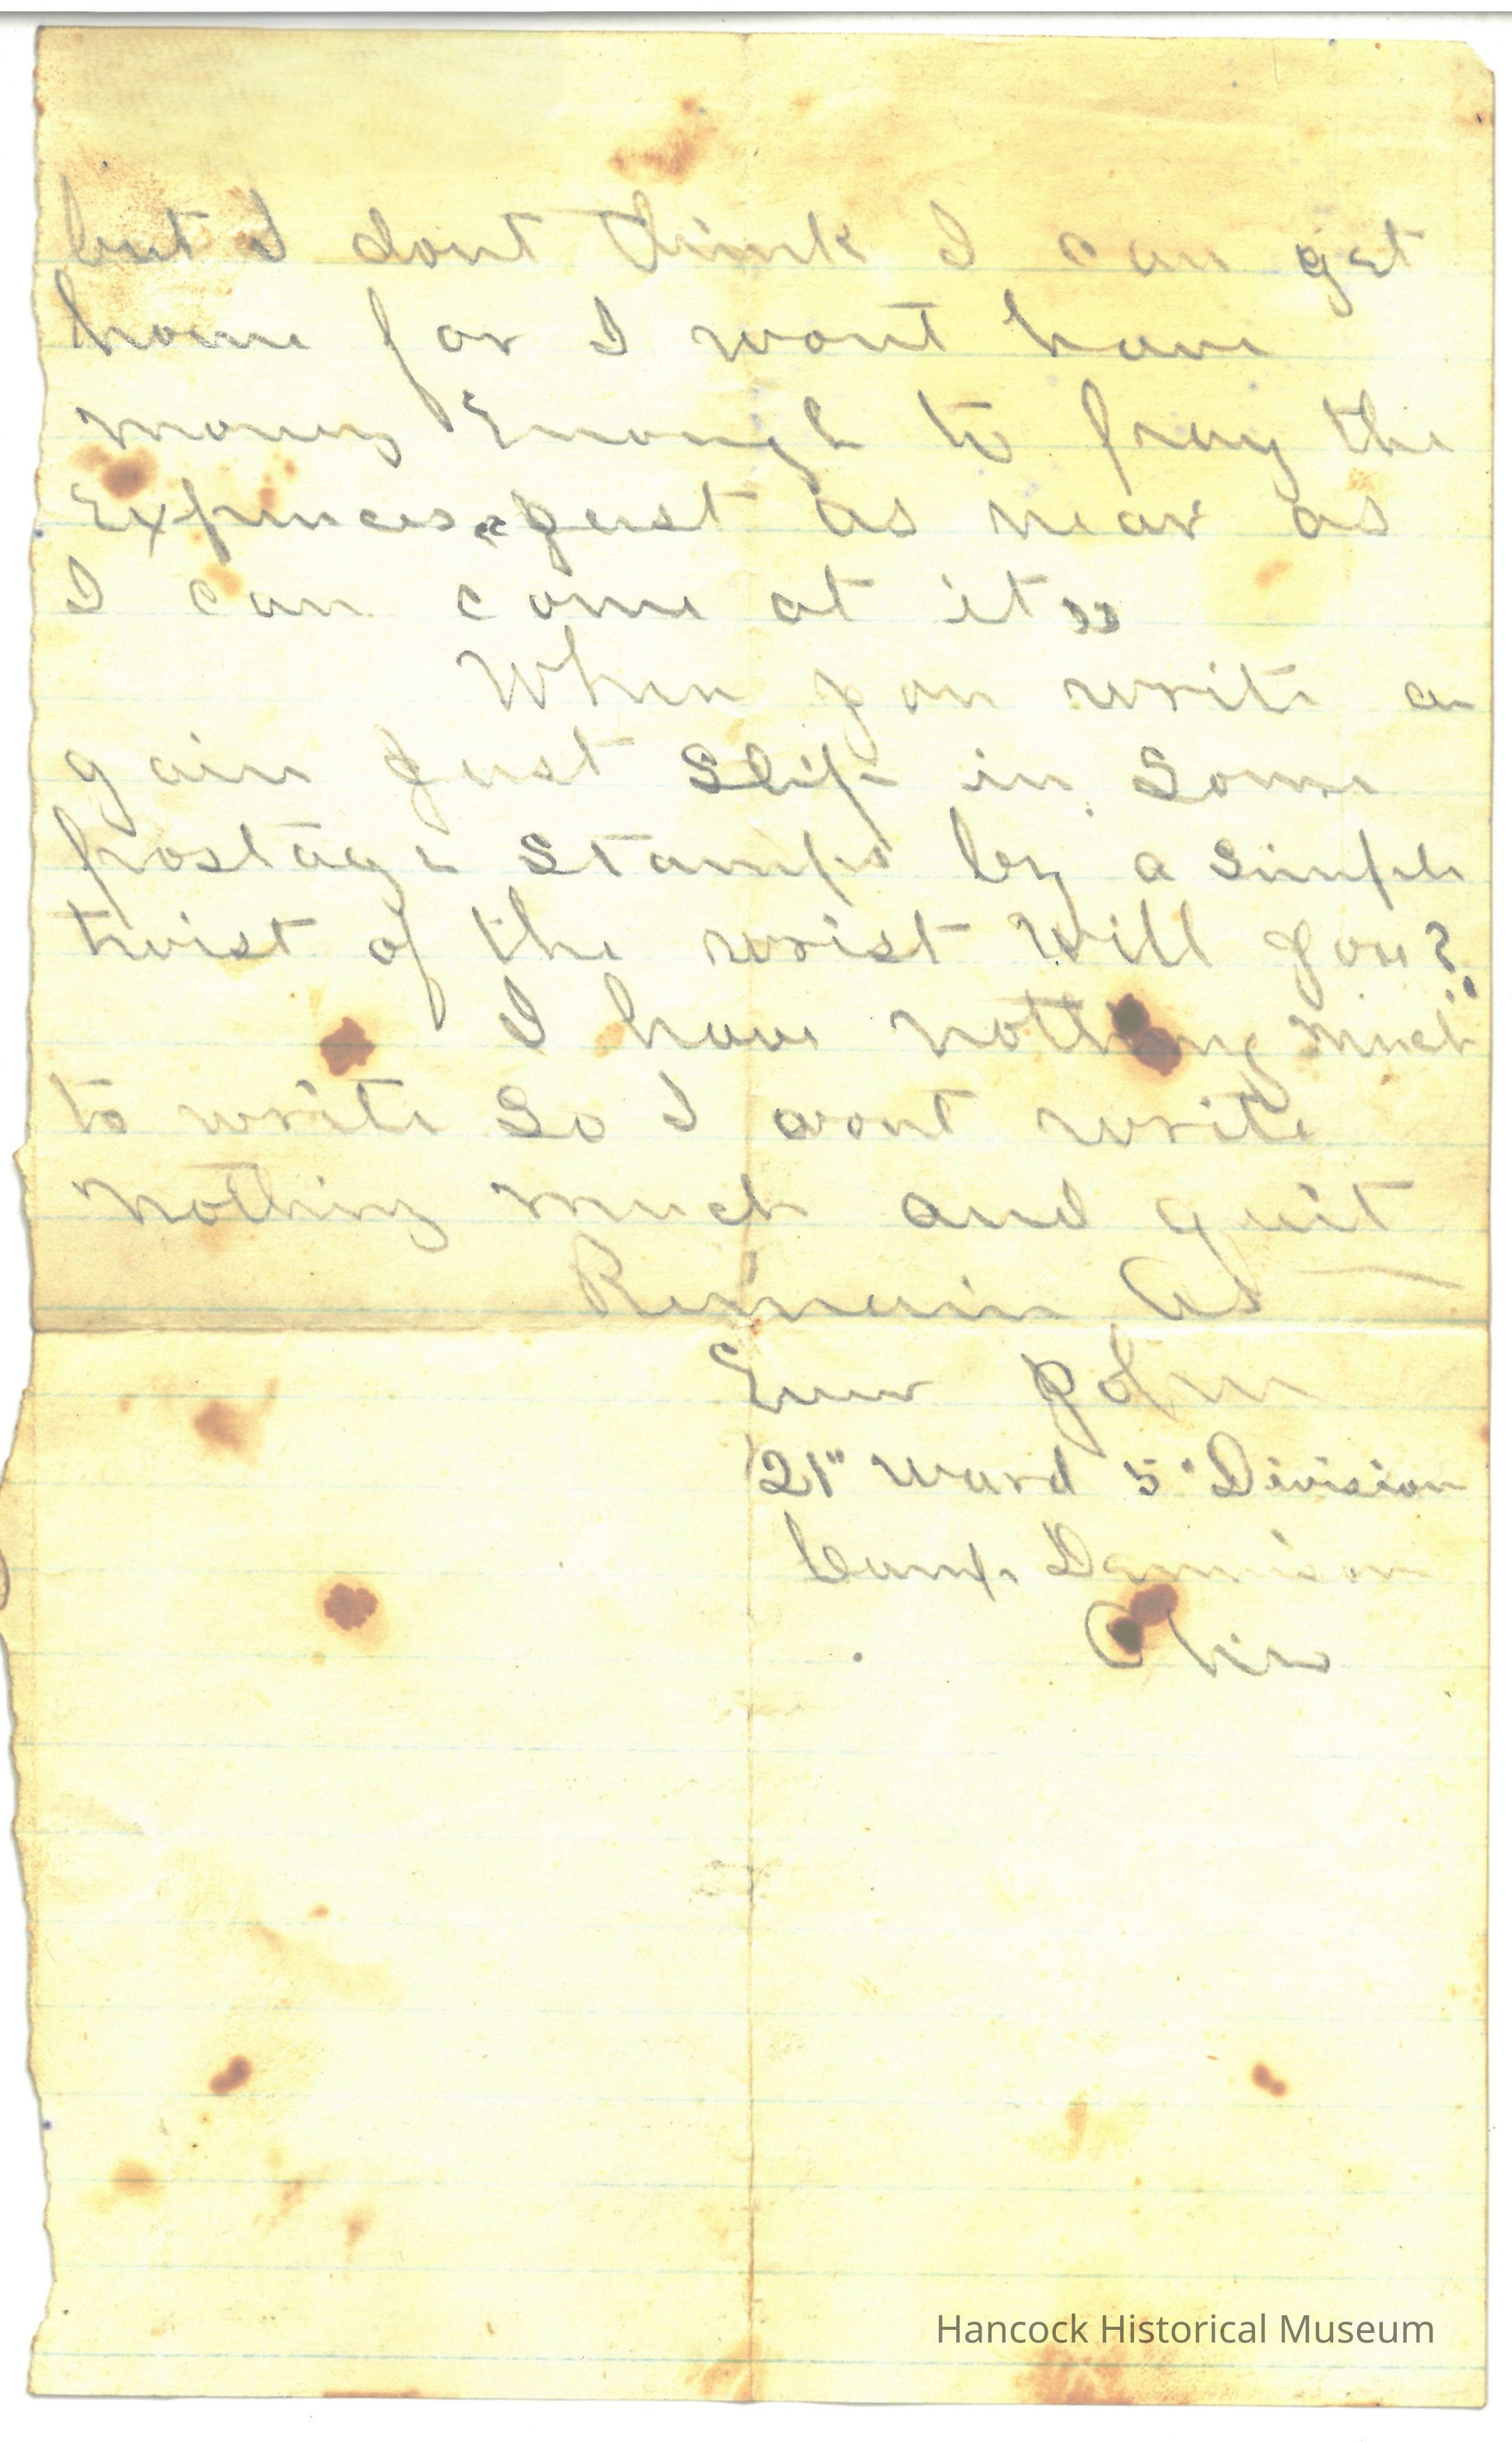 but I dont think I can get
home for I wont have
money Enough to pay the
Expences "just as near as
I can come at it"
When you write a
gain just Slip in Some
postage Stamps by a Simple
twist of the wrist Will you?
I have nothing much
to write So I wont write
nothing much and quit
Remain As
Ever John
21" Ward 5" Division
Camp Dennison
Ohio
Hancock Historical Museum